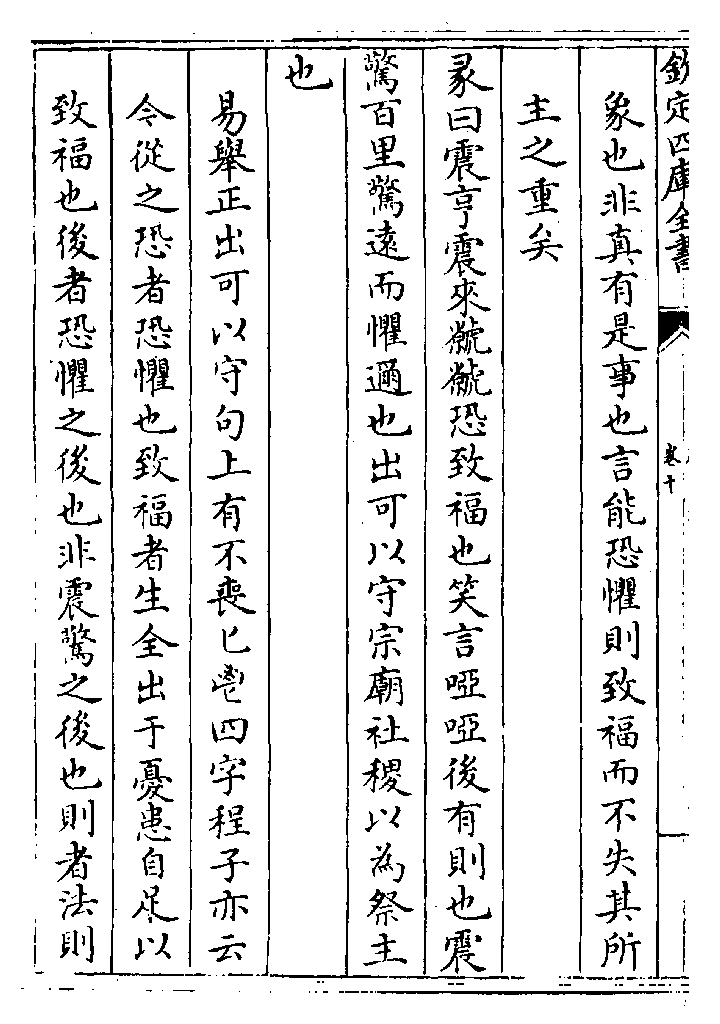 欽定四庫全書
卷十
象也非真有是事也言能恐懼則致福而不失其所
主之重矣
彖曰震亨震來虩虩恐致福也笑言啞啞後有則也震
驚百里驚遠而懼邇也出可以守宗廟社稷以為祭主
也
易舉正出可以守句上有不喪匕鬯四字程子亦云
今從之恐者恐懼也致福者生全出于憂患自足以
致福也後者恐懼之後也非震驚之後也則者法則